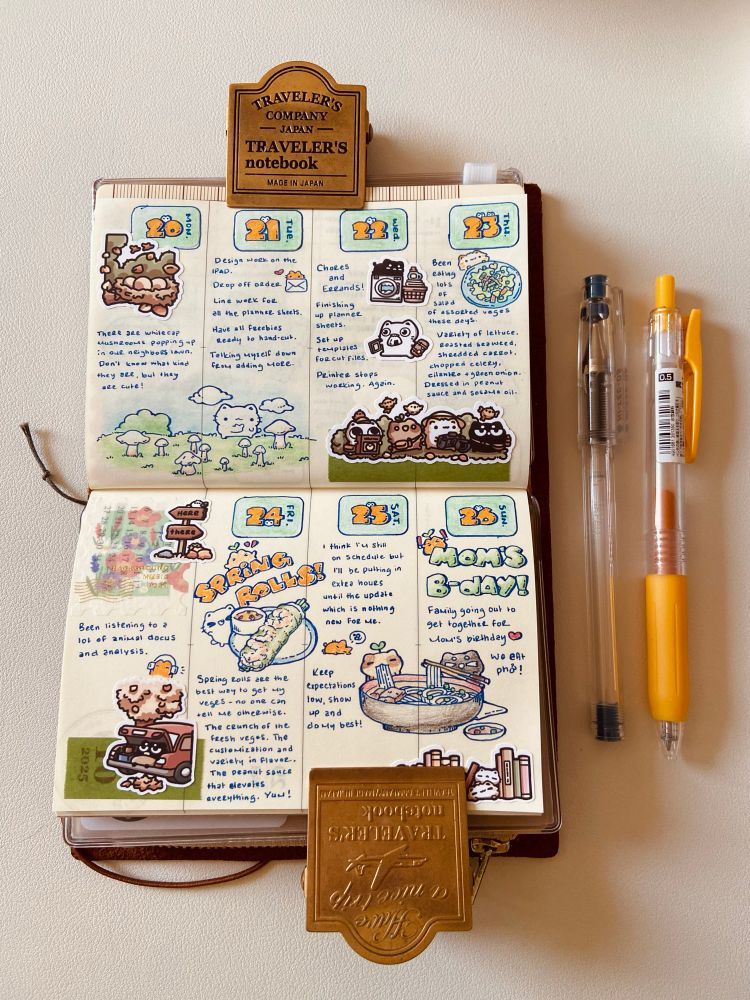 TRAVELER'S
COMPANY
JAPAN
TRAVELER'S
notebook
MADE IN JAPAN
20 MON.
There are whitecap
mushrooms popping up
in our neighbors lawn.
Don't know what kind
they are, but they
are cute!
21 Tue.
Design work on the
iPad.
Drop off order
Line work for
all the planner sheets.
Have all freebies
ready to hand-cut.
Talking myself down
from adding more.
22 Wed.
Chores
and
Errands!
Finishing
up planner
sheets.
Set up
templates
for cut files.
Printer stops
working. Again.
23 Thu.
Been
eating
lots
of
salad
of assorted veges
these days.
Variety of lettuce,
roasted seaweed,
shredded carrot,
chopped celery,
cilantro + green onion.
Dressed in peanut
sauce and sesame oil.
HERE
there
Been listening to a
lot of animal docus
and analysis.
10
2025
24 FRI.
SPRING
ROLLS!
Spring rolls are the
best way to get my
veges - no one can
tell me otherwise.
The crunch of the
fresh veges. The
customization and
variety in flavor.
The peanut sauce
that elevates
everything. Yum!
25 SAT.
I think I'm still
on schedule but
I'll be putting in
extra hours
until the update
which is nothing
new for me.
Keep
expectations
low, show
up and
do my best!
26 SUN.
MOM'S
B-DAY!
Family going out to
get together for
Mom's birthday
We eat
phở!
TRAVELER'S
notebook
Have
a nice trip
0.5